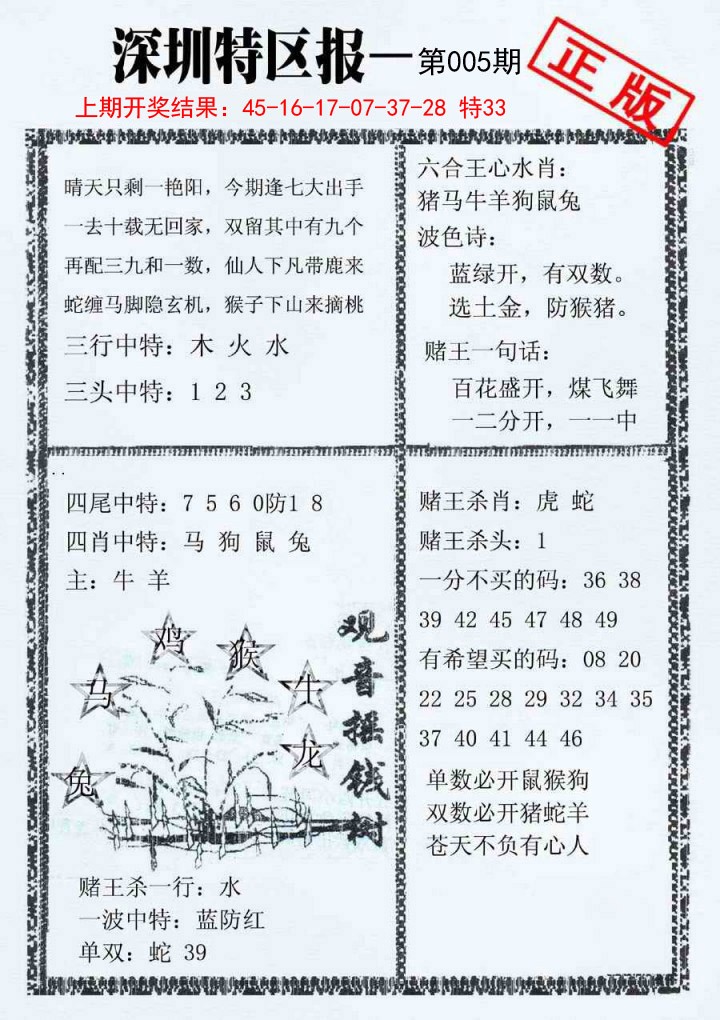 深圳特区报—第005期
正版
上期开奖结果：45-16-17-07-37-28 特33
晴天只剩一艳阳，今期逢七大出手
一去十载无回家，双留其中有九个
再配三九和一数，仙人下凡带鹿来
蛇缠马脚隐玄机，猴子下山来摘桃
三行中特：木 火 水
三头中特：1 2 3
六合王心水肖：
猪马牛羊狗鼠兔
波色诗：
蓝绿开，有双数。
选土金，防猴猪。
赌王一句话：
百花盛开，煤飞舞
一二分开，一一中
四尾中特：7 5 6 0防1 8
四肖中特：马 狗 鼠 兔
主：牛 羊
鸡
猴
马
牛
龙
兔
观音摇钱树
赌王杀一行：水
一波中特：蓝防红
单双：蛇 39
赌王杀肖：虎 蛇
赌王杀头：1
一分不买的码：36 38
39 42 45 47 48 49
有希望买的码：08 20
22 25 28 29 32 34 35
37 40 41 44 46
单数必开鼠猴狗
双数必开猪蛇羊
苍天不负有心人